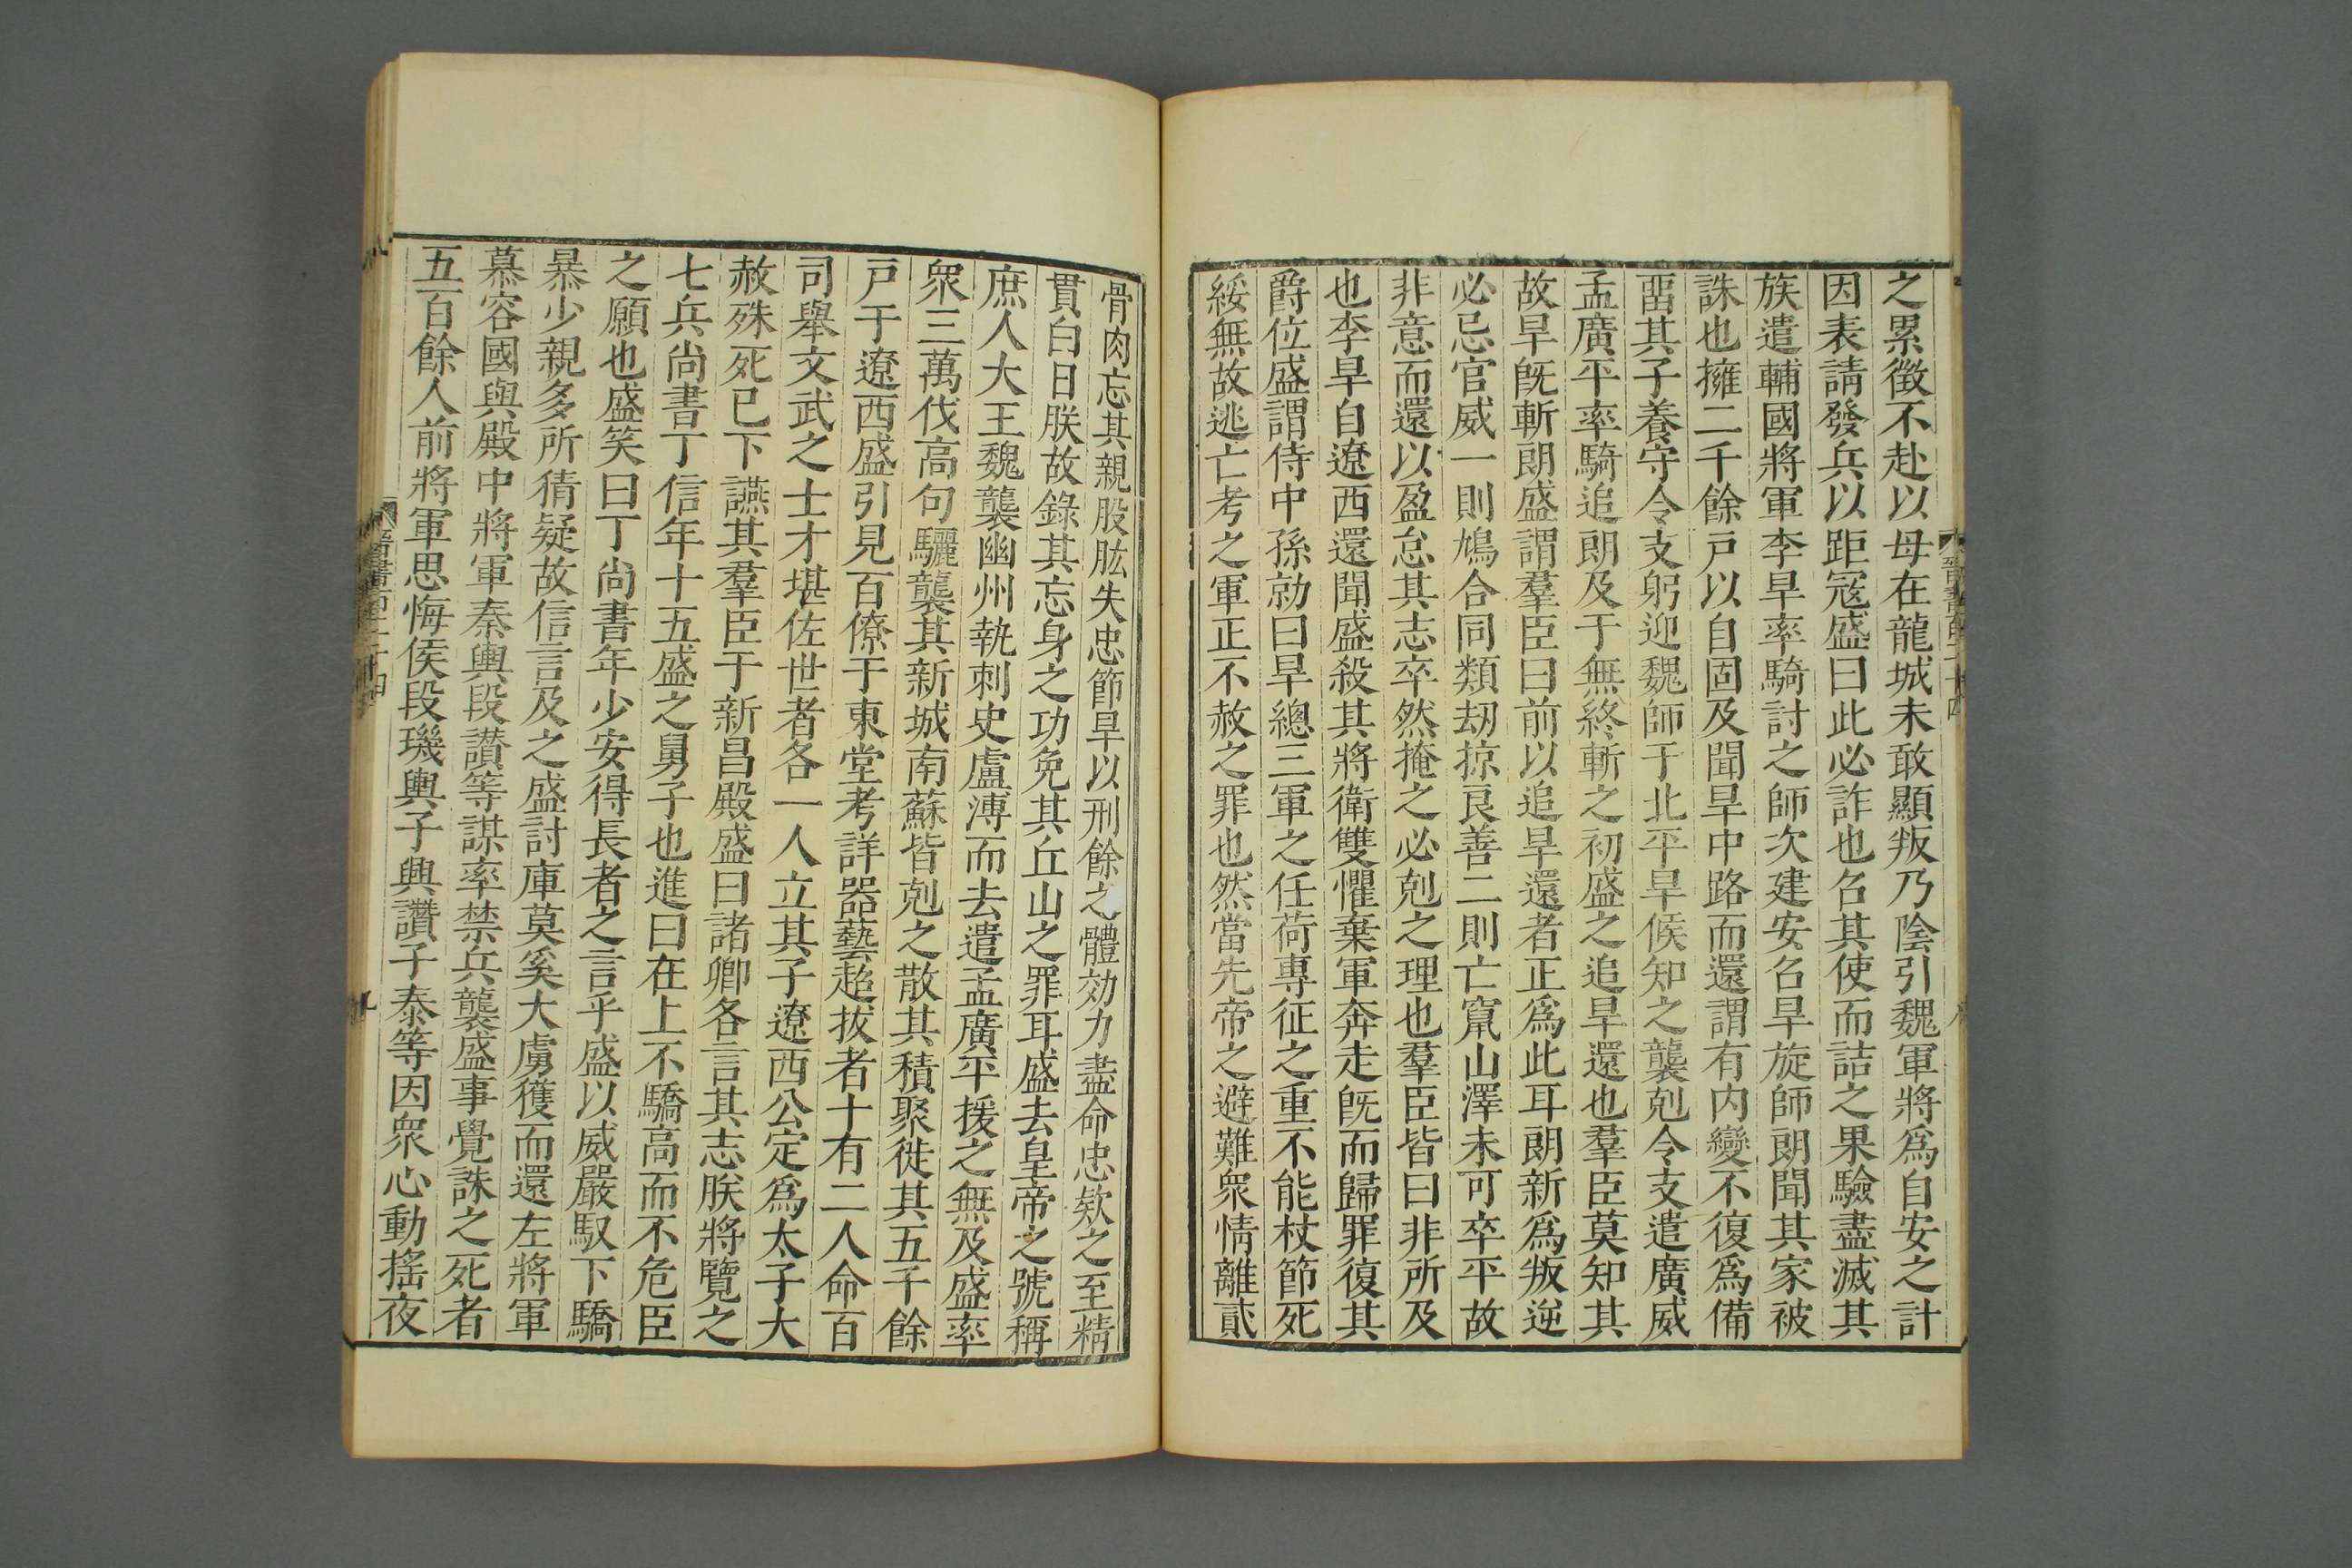 之累徵不赴以母在龍城未敢顯叛乃陰引魏軍將爲自安之計
因表請發兵以距寇盛曰此必詐也召其使而詰之果驗盡滅其
族遣輔國將軍李旱率騎討之師次建安召旱旋師朗聞其家被
誅也擁二千餘戸以自固及聞旱中路而還謂有内變不復爲備
畱其子養守令支躬迎魏師于北平旱候知之襲剋令支遣廣威
孟廣平率騎追朗及于無終斬之初盛之追旱還也羣臣莫知其
故旱既斬朗盛謂羣臣曰前以追旱還者正爲此耳朗新爲叛逆
必忌官威一則鳩合同類刼掠良善二則亡竄山澤未可卒平故
非意而還以盈怠其志卒然掩之必剋之理也羣臣皆曰非所及
也李旱自遼西還聞盛殺其將衛雙懼棄軍奔走既而歸罪復其
爵位盛謂侍中孫勍曰旱總三軍之任荷專征之重不能杖節死
綏無故逃亡考之軍正不赦之罪也然當先帝之避難衆情離貳
骨肉忘其親股肱失忠節旱以刑餘之體効力盡命忠欵之至精
貫白日朕故錄其忘身之功免其丘山之罪耳盛去皇帝之號稱
庶人大王魏襲幽州執刺史盧溥而去遣孟廣平援之無及盛率
衆三萬伐高句驪襲其新城南蘇皆剋之散其積聚徙其五千餘
戸于遼西盛引見百僚于東堂考詳器藝超拔者十有二人命百
司舉文武之士才堪佐世者各一人立其子遼西公定爲太子大
赦殊死已下讌其羣臣于新昌殿盛曰諸卿各言其志朕將覽之
七兵尚書丁信年十五盛之舅子也進曰在上不驕高而不危臣
之願也盛笑曰丁尚書年少安得長者之言乎盛以威嚴馭下驕
暴少親多所猜疑故信言及之盛討庫莫奚大虜獲而還左將軍
慕容國與殿中將軍秦輿段讃等謀率禁兵襲盛事覺誅之死者
五百餘人前將軍思悔侯段璣輿子興讚子泰等因衆心動搖夜